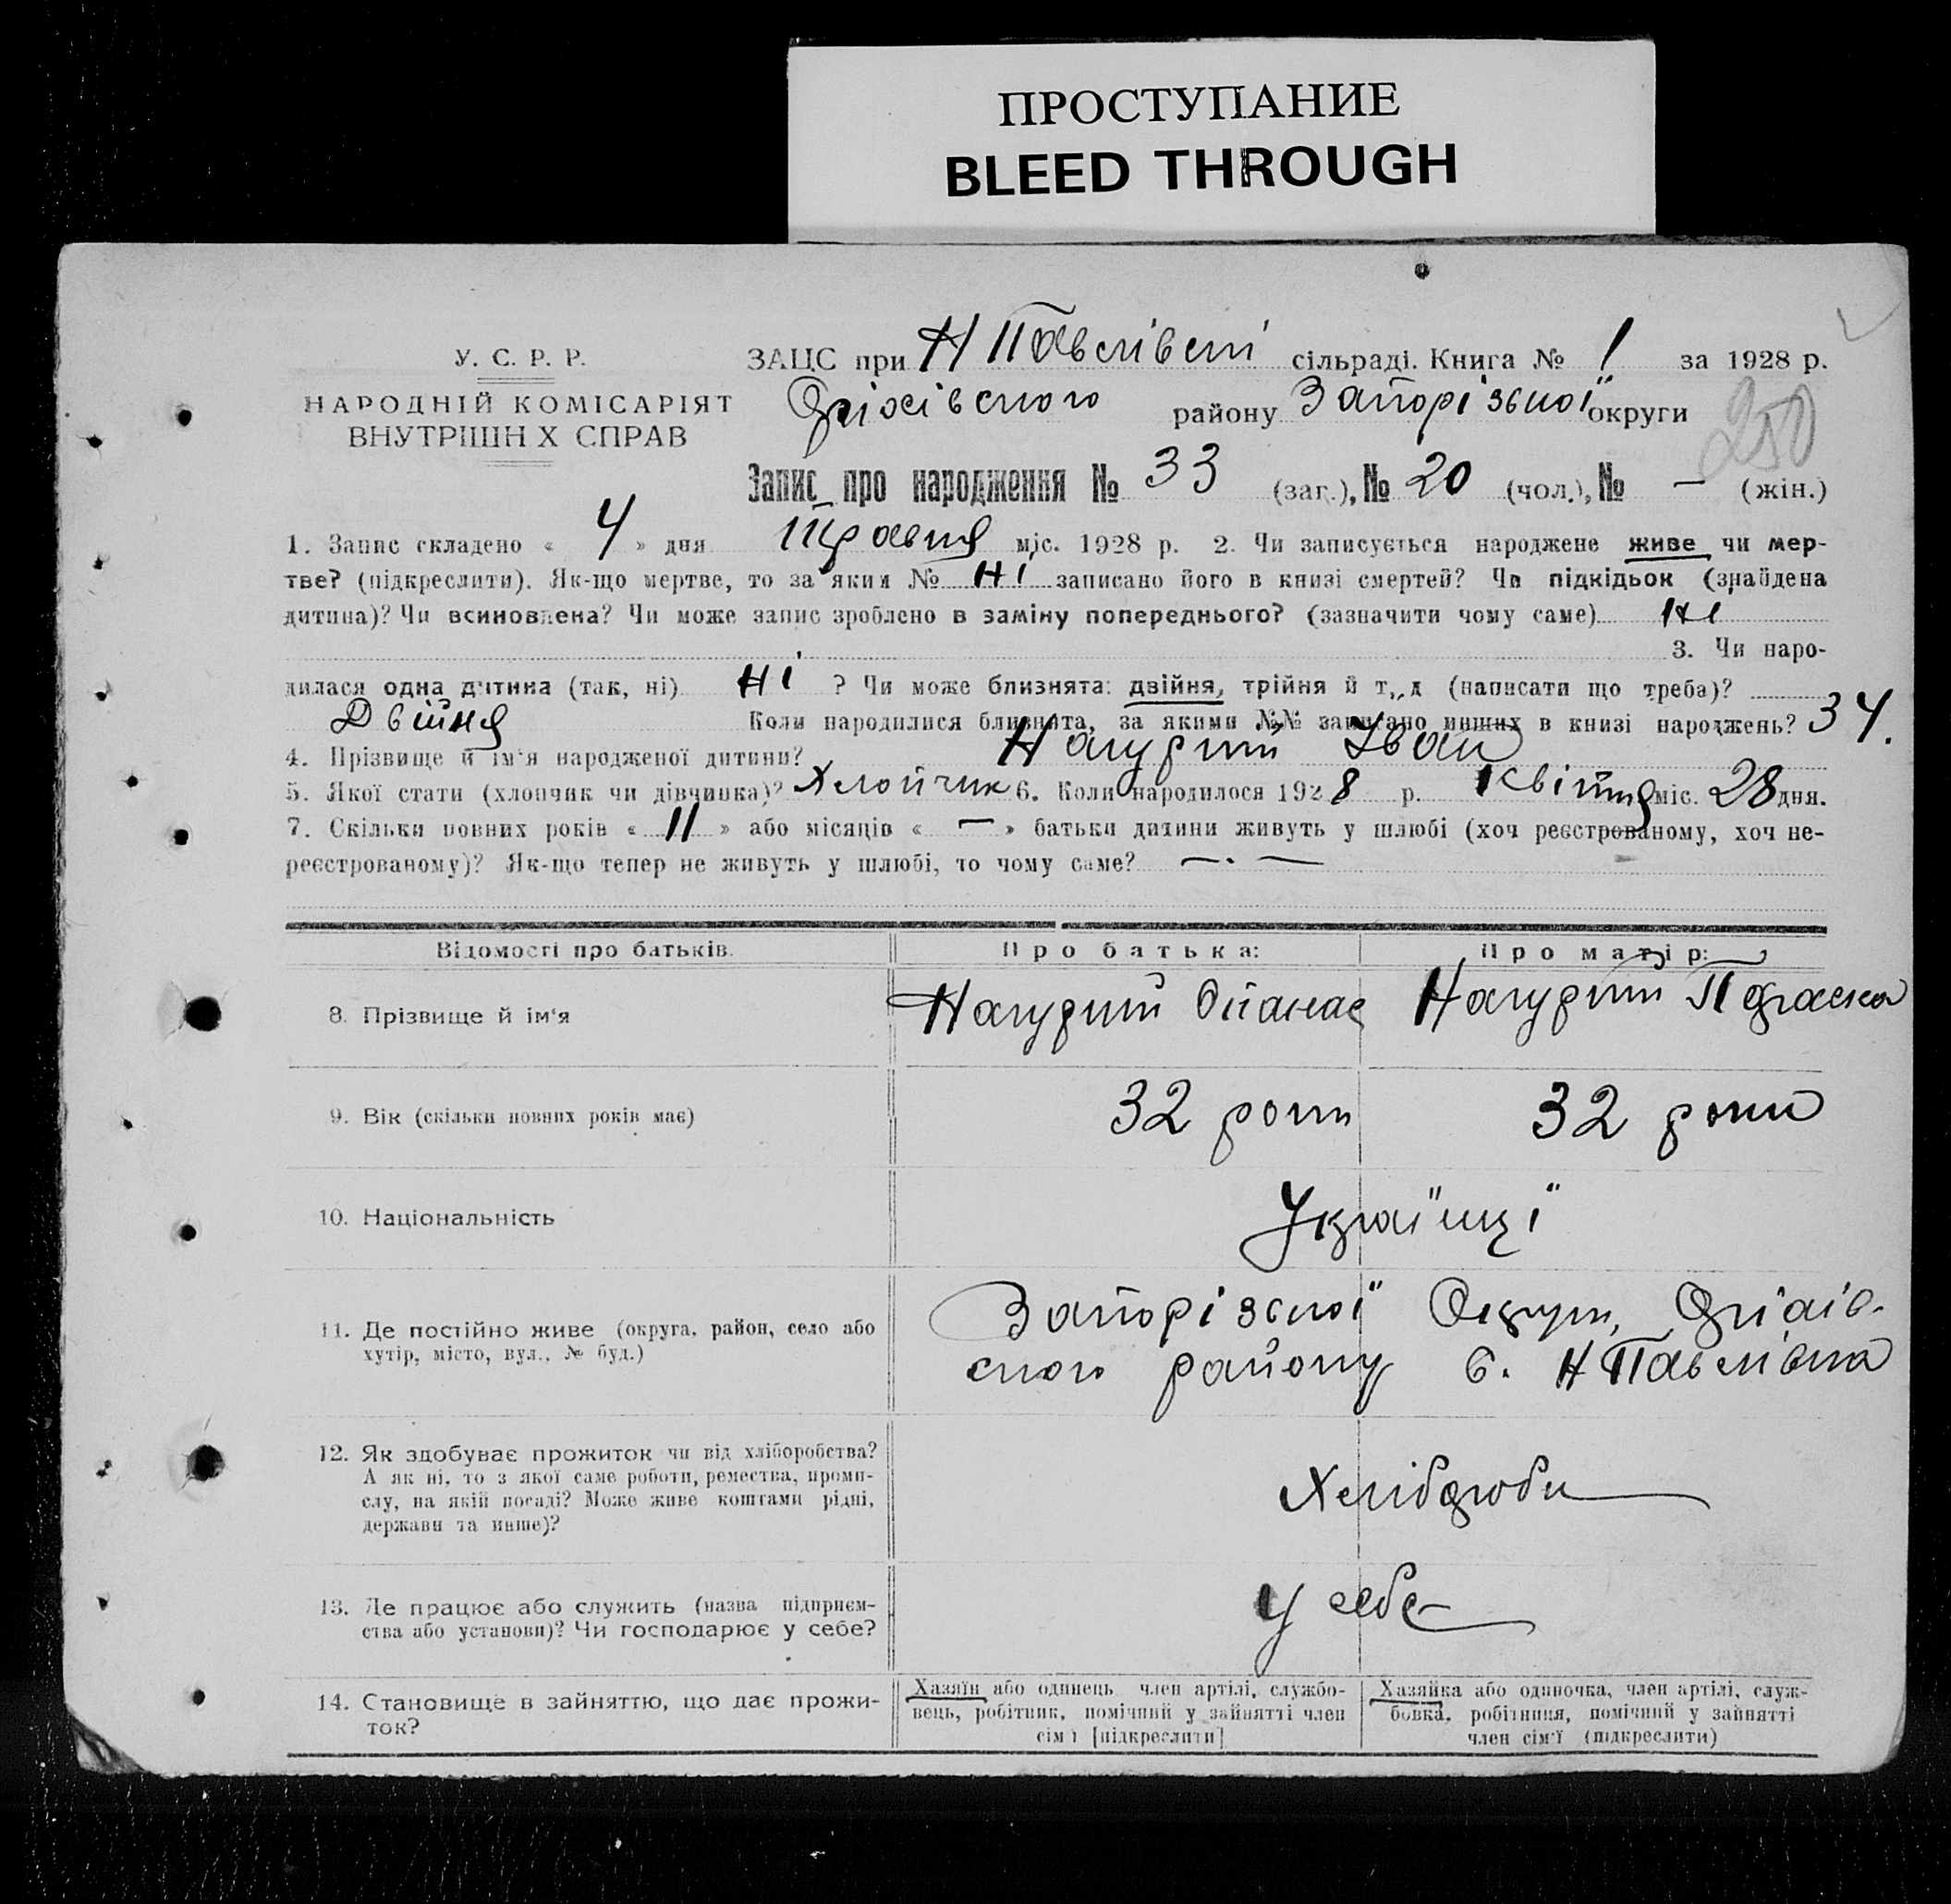 ПРОСТУПАНИЕ
BLEED THROUGH
У. С. Р. Р.
НАРОДНІЙ КОМІСАРІЯТ
ВНУТРІШН Х СПРАВ
ЗАЦС при Н Павлівскі сільраді. Книга № 1 за 1928 р.
Оріхівского району Запорізської округи
250
Запис про народження № 33 (заг.), № 20 (чол.), № — (жін.)
1. Запис складено « 4 » дня Травня міс. 1928 р. 2. Чи записується народжене живе чи мер-
тве? (підкреслити). Як-що мертве, то за яким № Ні записано його в книзі смертей? Чи підкідьок (знайдена
дитина)? Чи всиновлена? Чи може запис зроблено в заміну попереднього? (зазначити чому саме) Ні
3. Чи наро-
дилася одна дитина (так, ні) Ні ? Чи може близнята: двійня, трійня й т. д (написати що треба)?
Двійня Коли народилися близнята, за якими №№ записано инших в книзі народжень? 34.
4. Прізвище й ім'я народженої дитини? Нагурний Іван
5. Якої стати (хлопчик чи дівчинка)? Хлопчик 6. Коли народилося 1928 р. Квітня міс. 28 дня.
7. Скільки повних років « 11 » або місяців « — » батьки дитини живуть у шлюбі (хоч реєстрованому, хоч не-
реєстрованому)? Як-що тепер не живуть у шлюбі, то чому саме? —.—
Відомості про батьків. Про батька: Про матір:
8. Прізвище й ім'я Опанас Параска
9. Вік (скільки повних років має) 32 роки 32 роки
10. Національність Україщі
11. Де постійно живе (округа, район, село або
хутір, місто, вул., № буд.)
Запорізської Округи, Оріхів-
ского району с. Н Павлівка
12. Як здобуває прожиток чи від хліборобства?
А як ні, то з якої саме роботи, ремества, проми-
слу, на якій посаді? Може живе коштами рідні,
держави та инше)?
Хлібороби
13. Де працює або служить (назва підприєм-
ства або установи)? Чи господарює у себе?
У себе
14. Становище в зайняттю, що дає прожи-
ток?
Хазяїн або одинець член артілі, службо-
вець, робітник, помічний у зайнятті член
сім'ї [підкреслити]
Хазяйка або одиночка, член артілі, служ-
бовка, робітниця, помічний у зайнятті
член сім'ї (підкреслити)